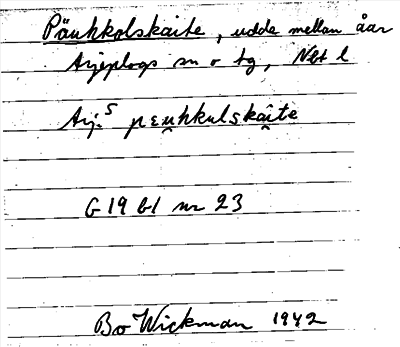 Päuhkolskaite, udde mellan åar
Arjeplogs sn o tg, Nbt l
Arj. S pɛu̯hkulskăi̯te
G 19 bl nr 23
Bo Wickman 1942